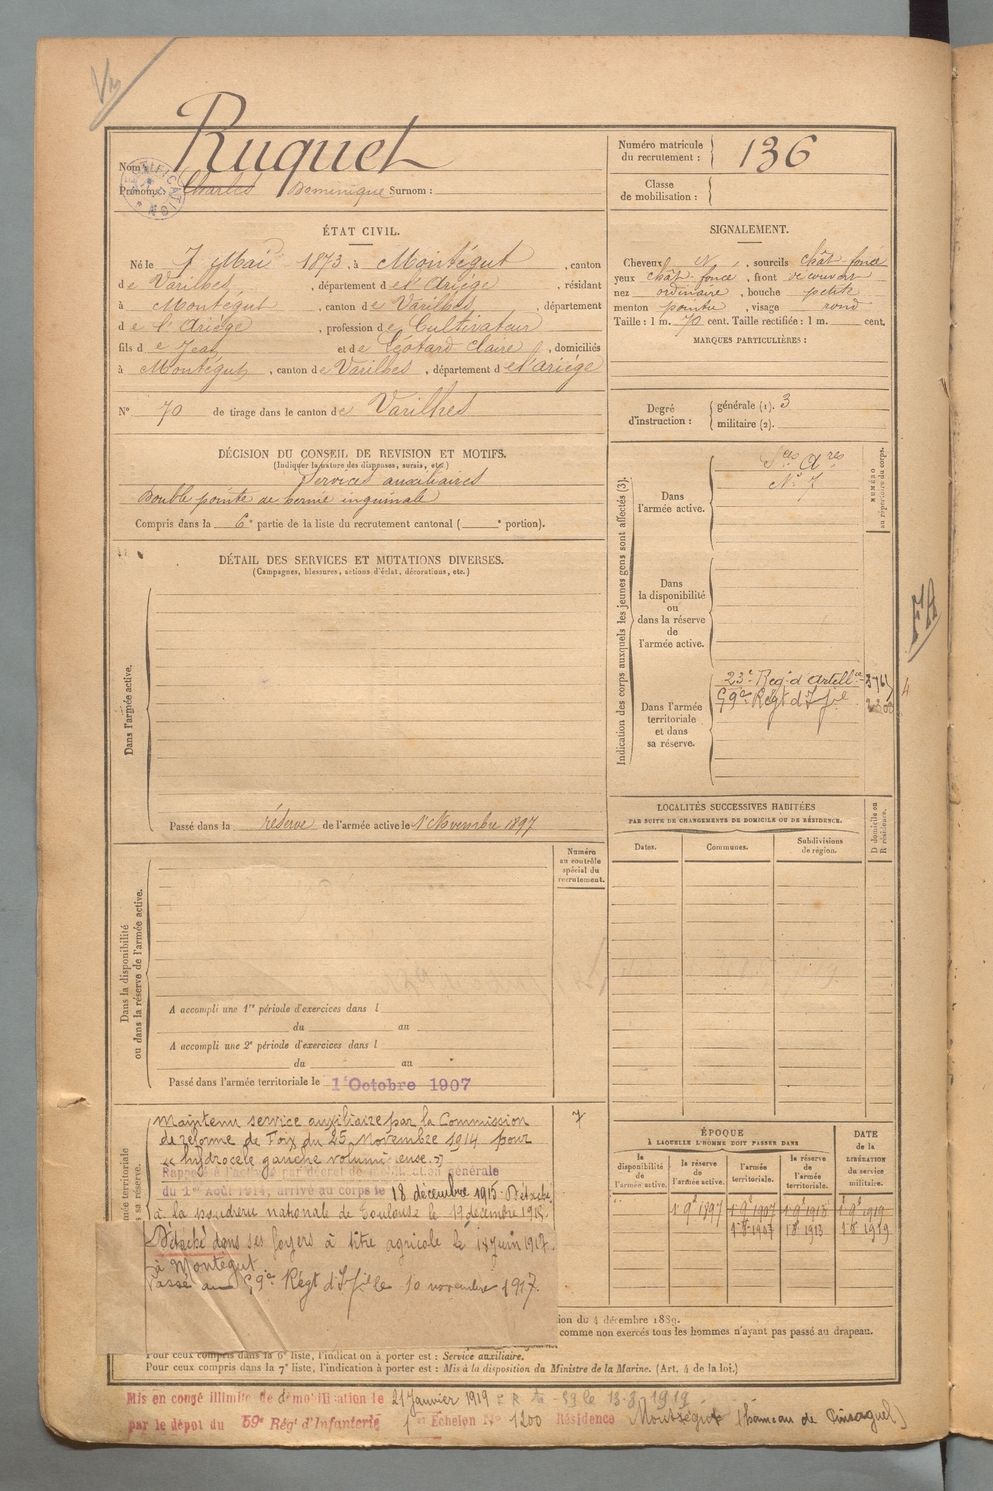 Ruquet
Nom :
Prénoms : Charles Dominique Surnom :
Numéro matricule du recrutement : 136
Classe de mobilisation :
ÉTAT CIVIL.
Né le 7 Mai 1873, à Montégut, canton
de Varilhes, département de l'Ariège, résidant
à Montégut, canton de Varilhes, département
de l'Ariège, profession de Cultivateur
fils de Jean et de Léotard Claire, domiciliés
à Montégut, canton de Varilhes, département de l'Ariège
N° 70 de tirage dans le canton de Varilhes
SIGNALEMENT.
Cheveux N, sourcils chât. foncé
yeux chât. foncé, front découvert
nez ordinaire, bouche petite
menton pointu, visage rond
Taille : 1 m. 70 cent. Taille rectifiée : 1 m. cent.
MARQUES PARTICULIÈRES :
Degré d'instruction : générale (1). 3
militaire (2).
DÉCISION DU CONSEIL DE REVISION ET MOTIFS.
(Indiquer la nature des dispenses, sursis, etc.)
Services auxiliaires
Double pointe de hernie inguinale
Compris dans la 6e partie de la liste du recrutement cantonal ( e portion).
DÉTAIL DES SERVICES ET MUTATIONS DIVERSES.
(Campagnes, blessures, actions d'éclat, décorations, etc.)
Dans l'armée active.
Passé dans la réserve de l'armée active le 1r Novembre 1897
Indication des corps auxquels les jeunes gens sont affectés (3).
NUMÉRO au répertoire du corps.
Dans l'armée active.
Sces Ares
N° 7
Dans la disponibilité ou dans la réserve de l'armée active.
Dans l'armée territoriale et dans sa réserve.
23e Reg. d'Artelle
59e Régt d'Infie
FA
LOCALITÉS SUCCESSIVES HABITÉES
PAR SUITE DE CHANGEMENTS DE DOMICILE OU DE RÉSIDENCE.
Dates. Communes. Subdivisions de région.
D domicile ou R résidence.
Numéro au contrôle spécial du recrutement.
Dans la disponibilité ou dans la réserve de l'armée active.
A accompli une 1re période d'exercices dans l
du au
A accompli une 2e période d'exercices dans l
du au
Passé dans l'armée territoriale le 1r Octobre 1907
7
Maintenu service auxiliaire par la Commission
de réforme de Foix du 25 Novembre 1914 pour
hydrocèle gauche volumineuse
Rappelé à l'activité par décret de mobilisation générale
du 1er Août 1914, arrivé au corps le 18 décembre 1915. Détaché
à la poudrerie nationale de Toulouse le 19 décembre 1915.
Détaché dans ses foyers à titre agricole le 18 juin 1917.
à Montégut
Passé au 59e Régt d'Infie le 10 novembre 1917.
ÉPOQUE
À LAQUELLE L'HOMME DOIT PASSER DANS
la disponibilité de l'armée active. la réserve de l'armée active. l'armée territoriale. la réserve de l'armée territoriale.
DATE de la LIBÉRATION du service militaire.
1 9 1897 1 9 1907 1 9 1913 1 9 1919
1 8 1907 1 8 1913 1 8 1919
ion du 4 décembre 1889.
comme non exercés tous les hommes n'ayant pas passé au drapeau.
Pour ceux compris dans la 6e liste, l'indication à porter est : Service auxiliaire.
Pour ceux compris dans la 7e liste, l'indication à porter est : Mis à la disposition du Ministre de la Marine. (Art. 4 de la loi.)
Mis en congé illimité de démobilisation le 21 Janvier 1919
par le dépôt du 59e Rég' d'Infanterie 1er Echelon N° 1200 Résidence Montégut (hameau de Pinsaguel)